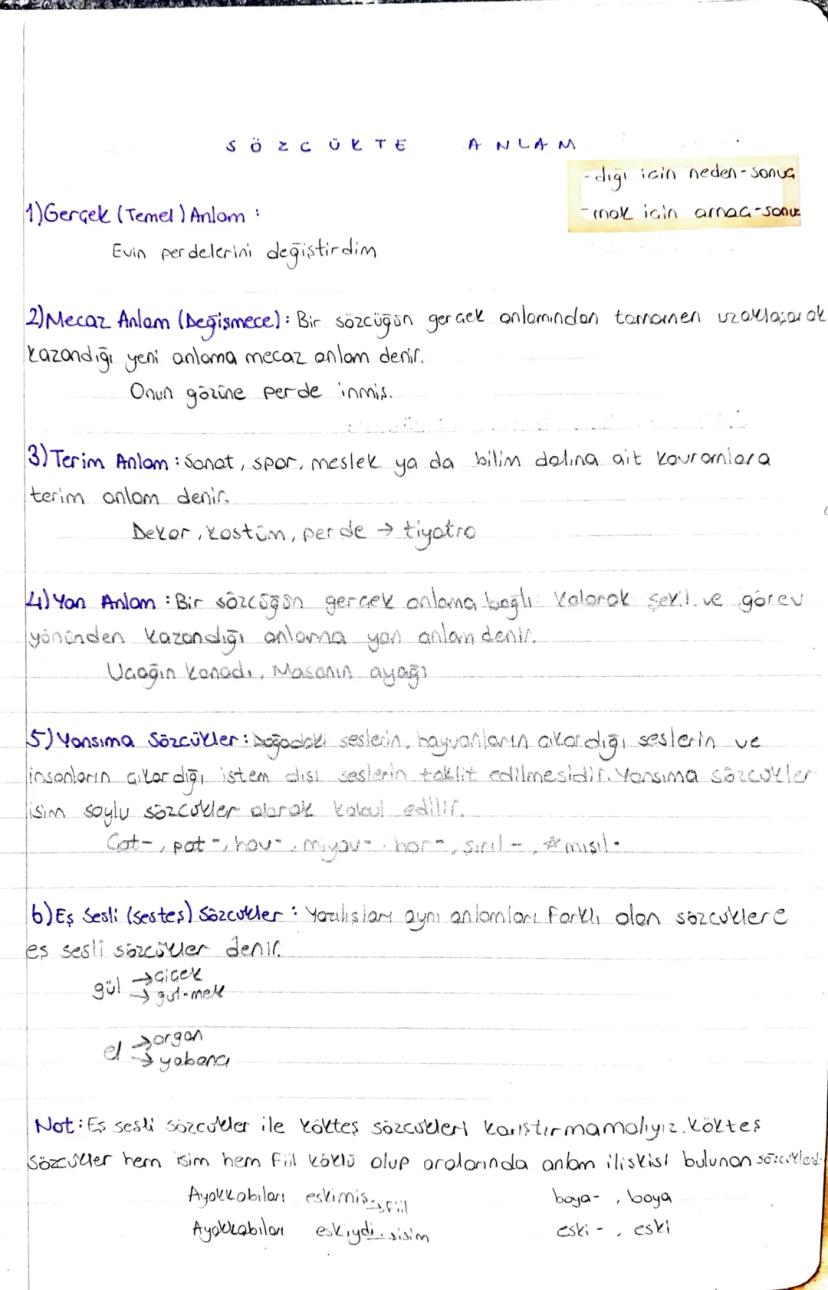 SÖZCÜKTE ANLAM
-dığı için neden-sonuç
-mak için amaç-sonuç
1)Gerçek (Temel) Anlam :
Evin perdelerini değiştirdim
2)Mecaz Anlam (Değişmece): Bir sözcüğün gerçek anlamından tamamen uzaklaşarak
kazandığı yeni anlama mecaz anlam denir.
Onun gözüne perde inmiş.
3)Terim Anlam : Sanat, spor, meslek ya da bilim dalına ait kavramlara
terim anlam denir.
Dekor, kostüm, perde → tiyatro
4)Yan Anlam : Bir sözcüğün gerçek anlama bağlı kalarak şekil ve görev
yönünden kazandığı anlama yan anlam denir.
Uçağın kanadı, Masanın ayağı
5)Yansıma Sözcükler : Doğadaki seslerin, hayvanların çıkardığı seslerin ve
insanların çıkardığı istem dışı seslerin taklit edilmesidir. Yansıma sözcükler
isim soylu sözcükler olarak kabul edilir.
Çat-, pat-, hav-, miyav-, hor-, şırıl-, *mışıl-
6)Eş Sesli (sesteş) Sözcükler : Yazılışları aynı anlamları farklı olan sözcüklere
eş sesli sözcükler denir.
gül → çiçek
→ gül-mek
el → organ
→ yabancı
Not : Eş sesli sözcükler ile kökteş sözcükleri karıştırmamalıyız. Kökteş
sözcükler hem isim hem fiil köklü olup aralarında anlam ilişkisi bulunan sözcüklerdir.
Ayakkabıları eskimiş → fiil boya- , boya
Ayakkabıları eskiydi → isim eski- , eski